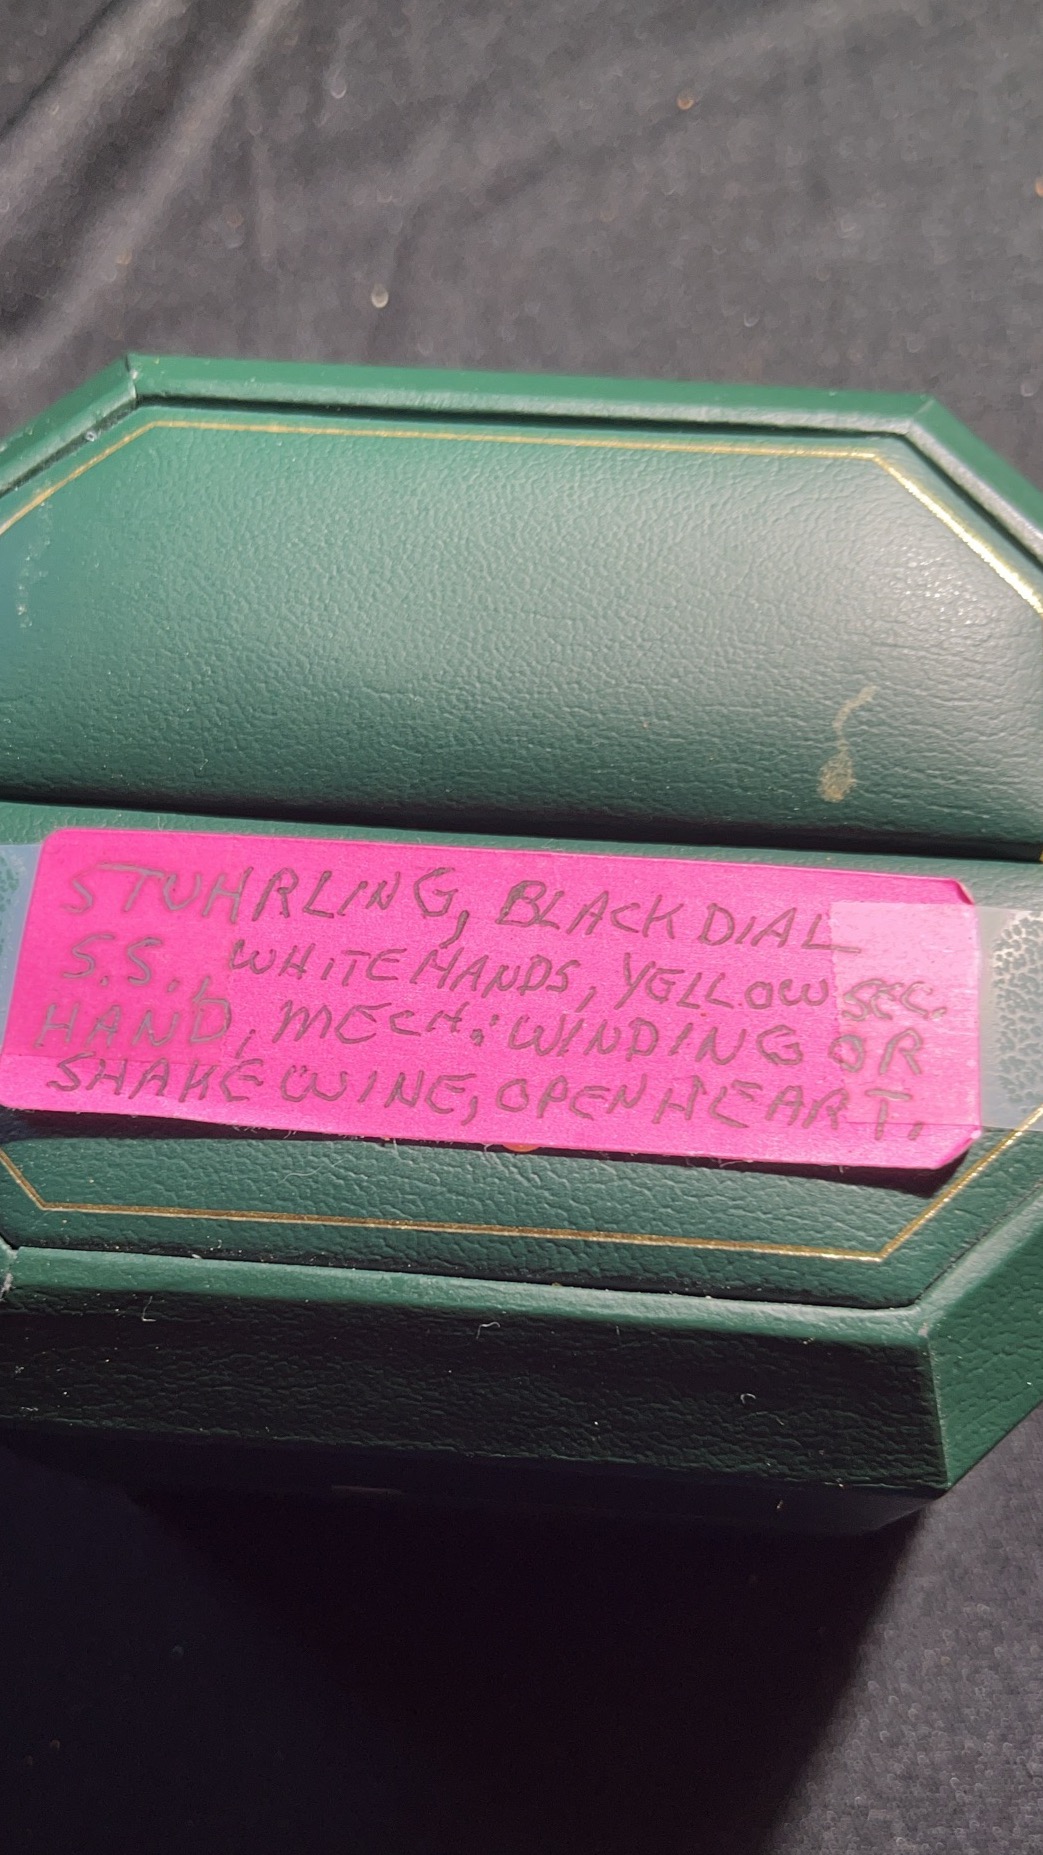 STUHRLING, BLACK DIAL
S.S., WHITE HANDS, YELLOW SEC.
HAND, MECH.: WINDING OR
SHAKE WINE, OPEN HEART.